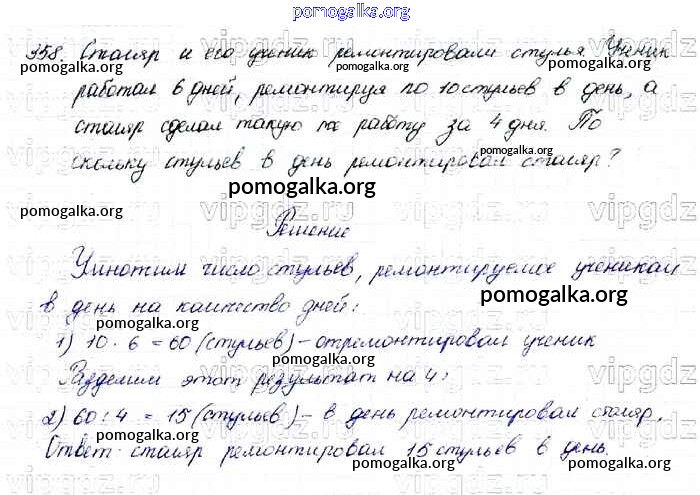 pomogalka.org
358. Столяр и его ученик ремонтировали стулья. Ученик
pomogalka.org pomogalka.org pomogalka.org
работал 6 дней, ремонтируя по 10 стульев в день, а
столяр сделал такую же работу за 4 дня. По
скольку стульев в день ремонтировал столяр?
pomogalka.org pomogalka.org
pomogalka.org pomogalka.org
vipgdz.ru vipgdz
Решение
Умножим число стульев, ремонтируемое учеником
pomogalka.org
в день на количество дней:
pomogalka.org
1) 10 · 6 = 60 (стульев) – отремонтировал ученик
pomogalka.org pomogalka.org
Разделим этот результат на 4:
2) 60 : 4 = 15 (стульев) – в день ремонтировал столяр.
pomogalka.org pomogalka.org
Ответ: столяр ремонтировал 15 стульев в день.
pomogalka.org pomogalka.org
vipgdz.ru vipgdz.ru vipgdz